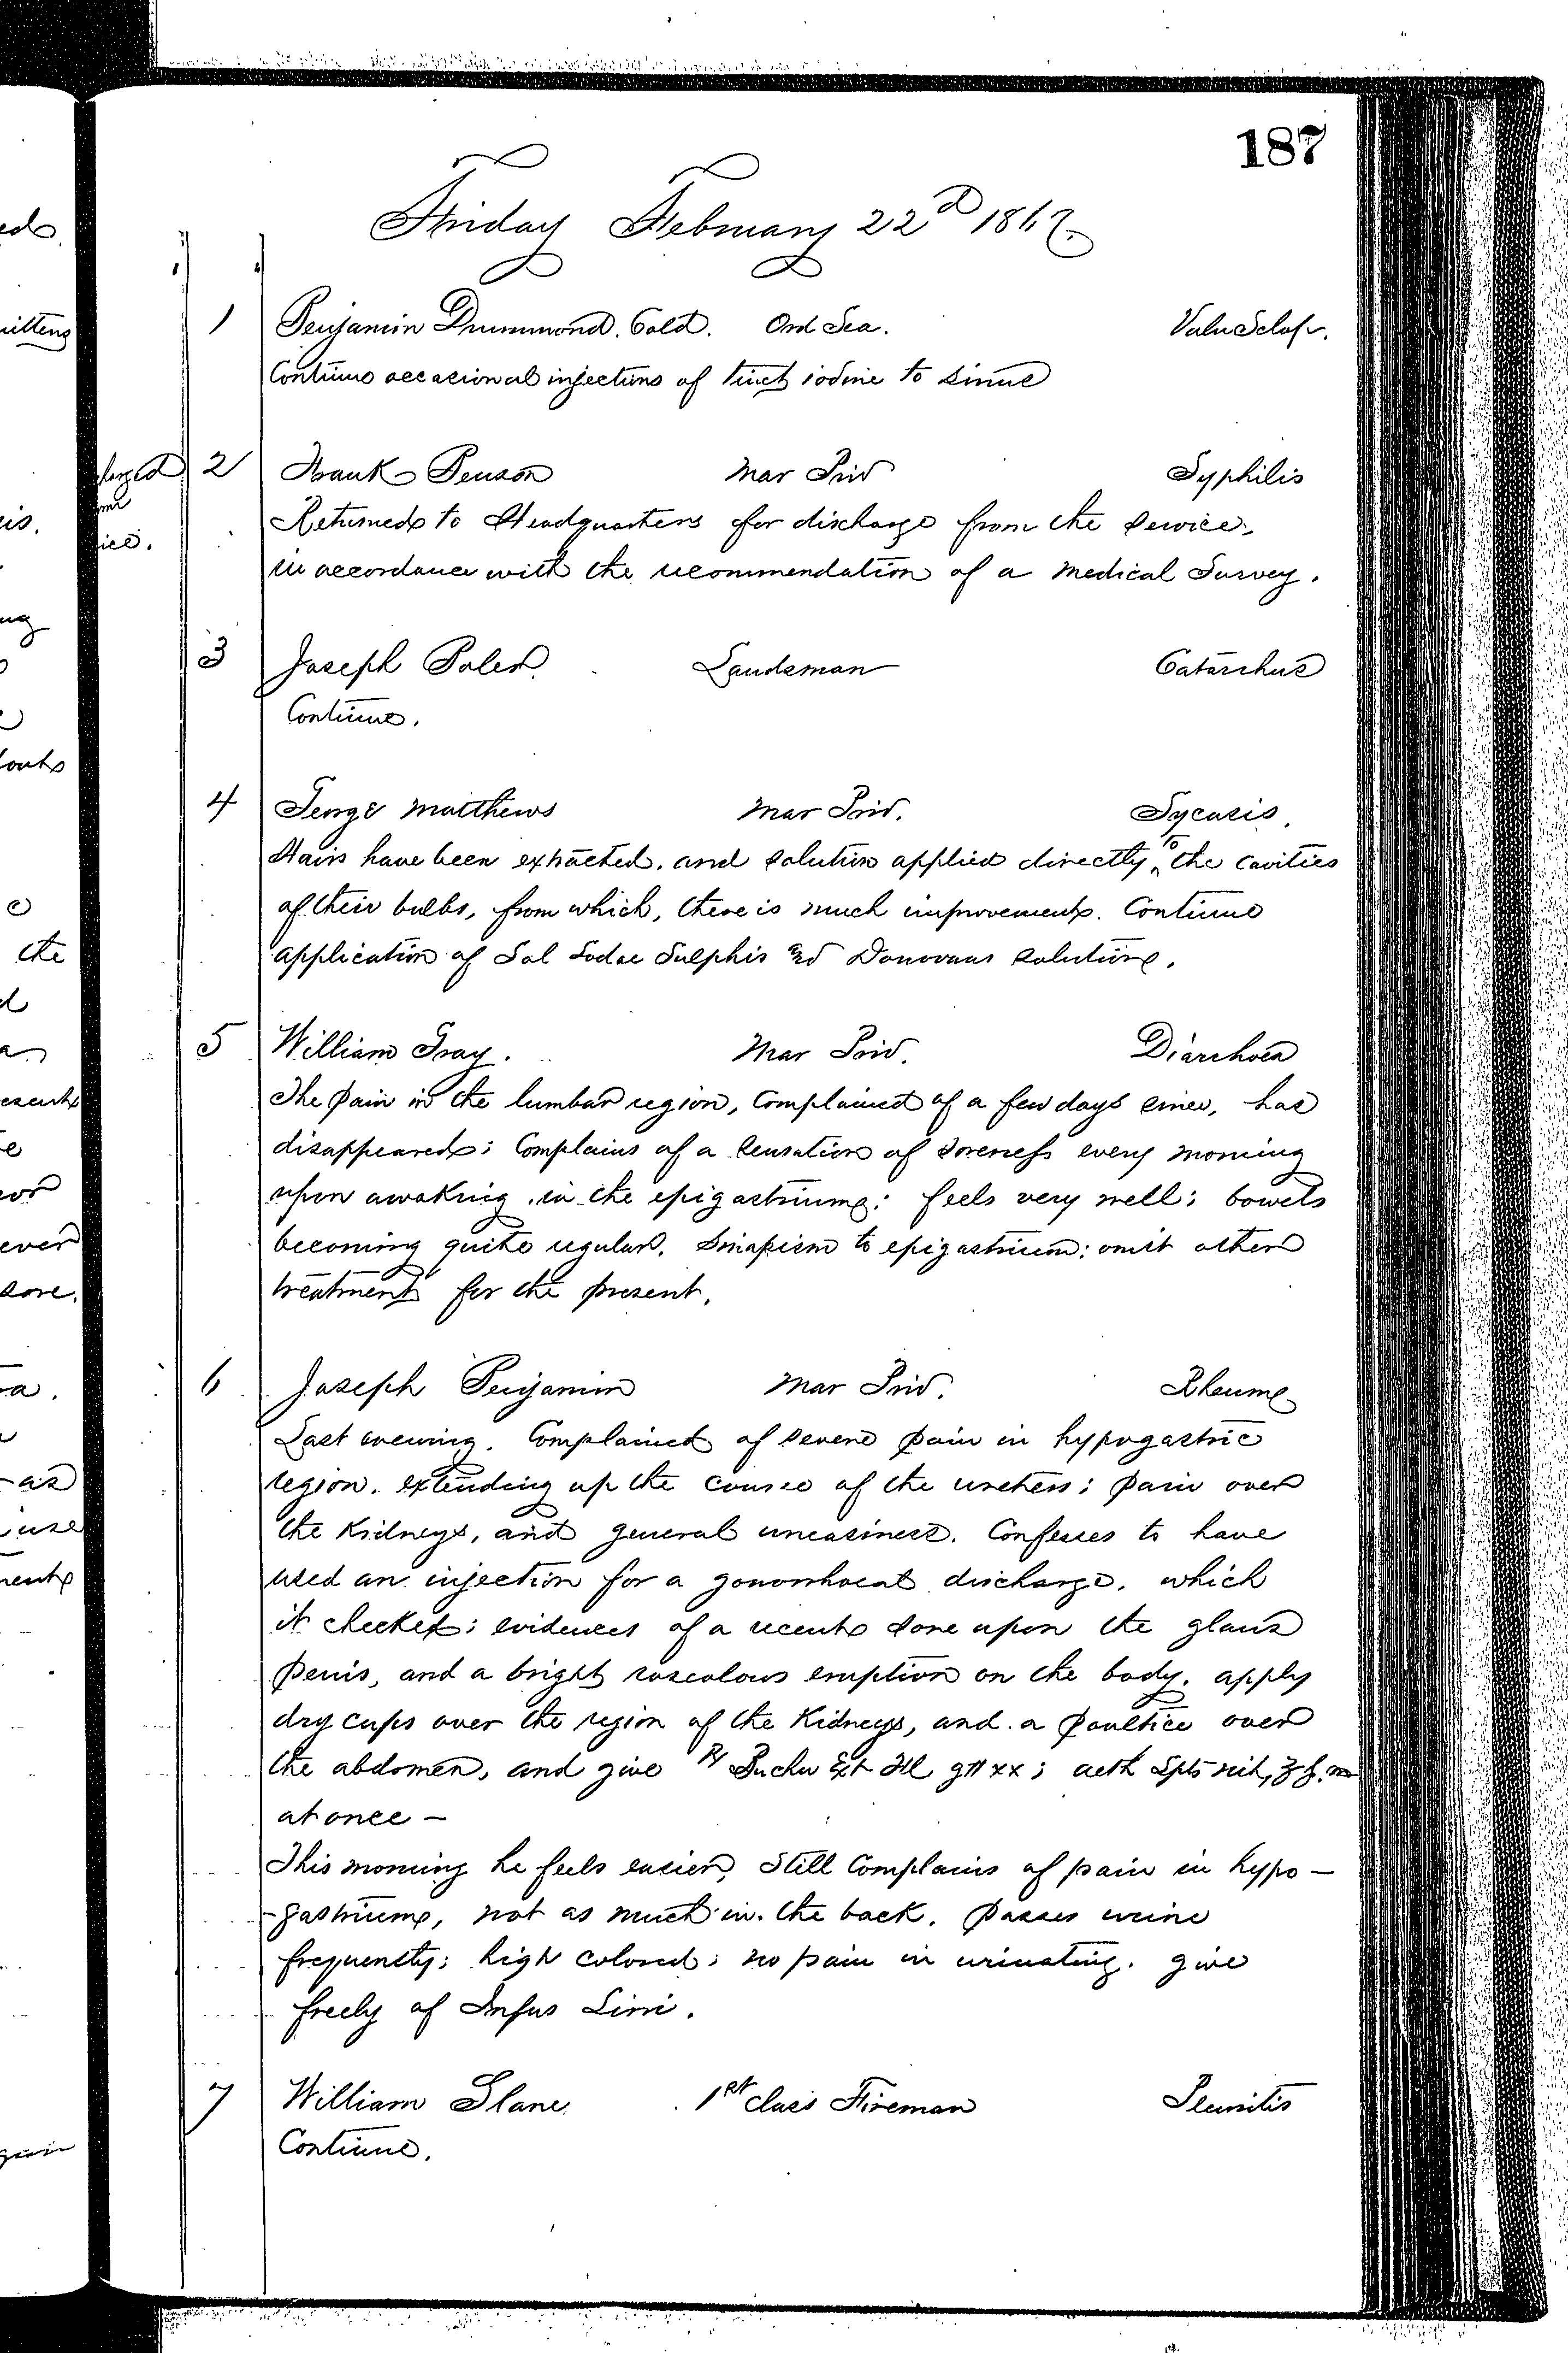 187
Friday February 22d 1867.
1 Benjamin Drummond. Cold. Ord Sea. Vuln Sclop.
Continue occasional injections of tinct iodine to sinus
2 Frank Benson Mar Priv Syphilis
Returned to Headquarters for discharge from the service,
in accordance with the recommendation of a medical Survey.
3 Joseph Landsman Catarrhus
Continue.
4 George Matthews Mar Priv. Sycosis.
Hairs have been extracted, and solution applied directly to the cavities
of their bulbs, from which, there is much improvement. Continue
application of Sol Sodae Sulphis and Donovans solution.
5 William Gray. Mar Priv. Diarrhoea
The pain in the lumbar region, complained of a few days since, has
disappeared: Complains of a sensation of soreness every morning
upon awaking, in the epigastrium: feels very well: bowels
becoming quite regular. Sinapism to epigastrium: omit other
treatment for the present.
6 Joseph Benjamin Mar Priv. Rheum
Last evening. Complained of severe pain in hypogastric
region. extending up the course of the ureters; pain over
the kidneys, and general uneasiness. Confesses to have
used an injection for a gonorrhoeal discharge, which
it checked; evidences of a recent sore upon the glans
penis, and a bright roseolous eruption on the body. apply
dry cups over the region of the Kidneys, and a poultice over
the abdomen, and give ℞ Buchu Ext Fl gtt xx; aeth Spts nit,
at once —
This morning he feels easier, still complains of pain in hypo-
-gastrium, not as much in the back. Passes urine
frequently; high colored; no pain in urinating. give
freely of Infus Lini.
7 William Slane 1st class Fireman Pleuritis
Continue.